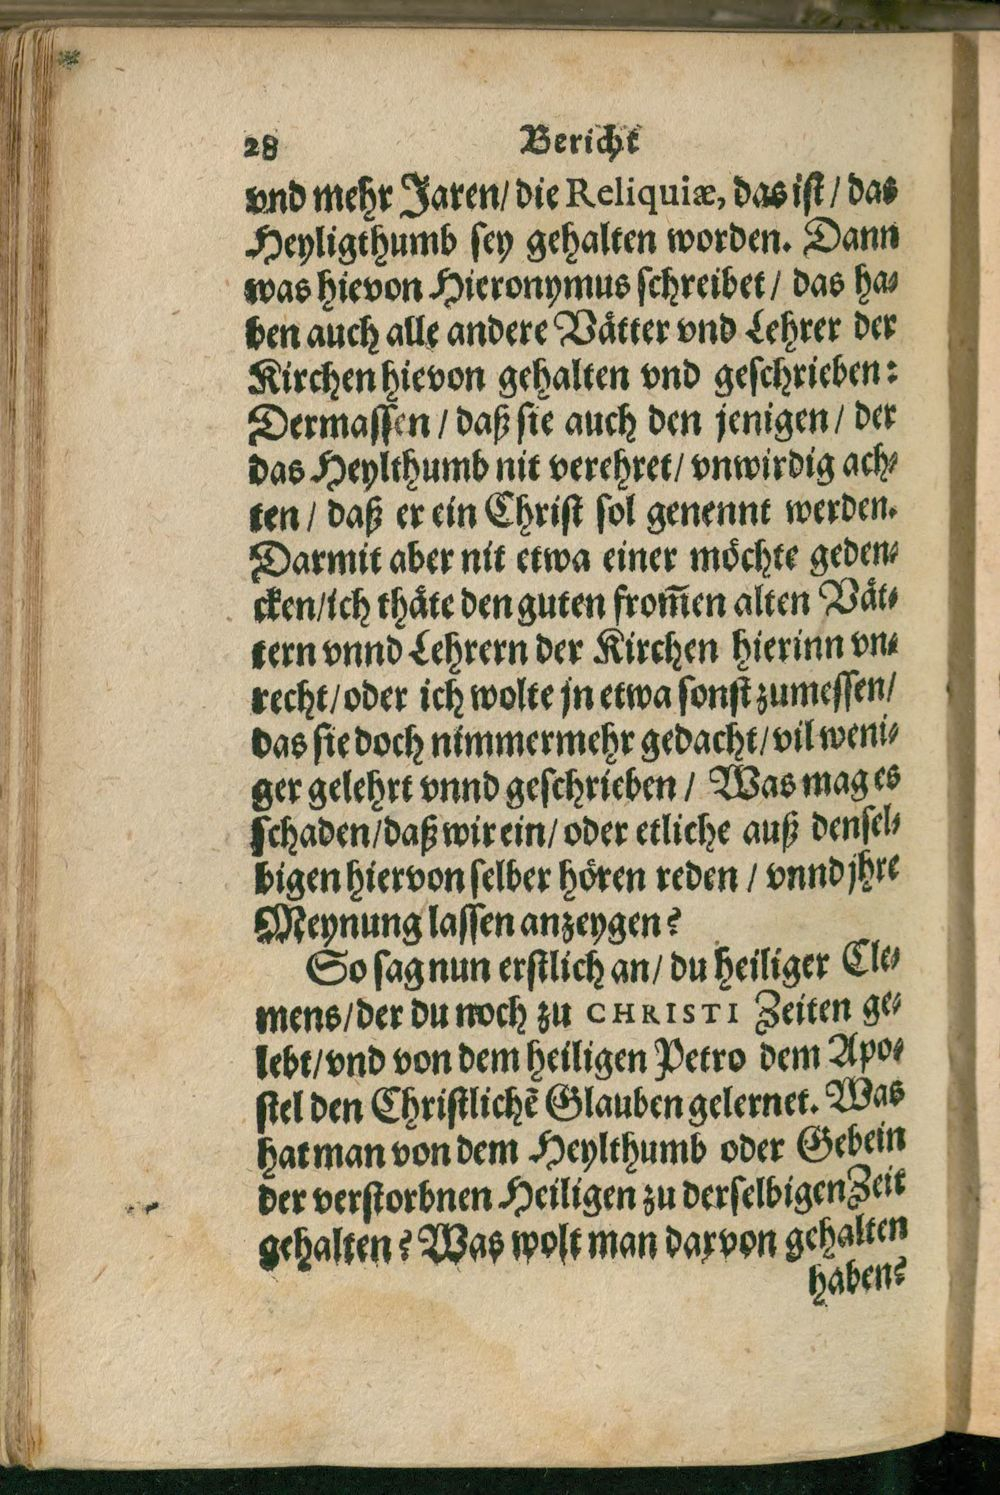 28 Bericht
vnd mehr Jaren/ die Reliquiæ, das ist/ das
Heyligthumb sey gehalten worden. Dann
was hievon Hieronymus schreibet/ das ha-
ben auch alle andere Vätter vnd Lehrer der
Kirchen hievon gehalten vnd geschrieben:
Dermassen/ daß sie auch den jenigen/ der
das Heylthumb nit verehret/ vnwirdig ach-
ten/ daß er ein Christ sol genennt werden.
Darmit aber nit etwa einer möchte geden-
cken/ ich thäte den guten from̃en alten Vät-
tern vnnd Lehrern der Kirchen hierinn vn-
recht/ oder ich wolte jn etwa sonst zumessen/
das sie doch nimmermehr gedacht/ vil weni-
ger gelehrt vnnd geschrieben/ Was mag es
schaden/ daß wir ein/ oder etliche auß densel-
bigen hiervon selber hören reden/ vnnd jhre
Meynung lassen anzeygen?
So sag nun erstlich an/ du heiliger Cle-
mens/ der du noch zu CHRISTI Zeiten ge-
lebt/ vnd von dem heiligen Petro dem Apo-
stel den Christlichẽ Glauben gelernet. Was
hat man von dem Heylthumb oder Gebein
der verstorbnen Heiligen zu derselbigen Zeit
gehalten? Was wolt man darvon gehalten
haben?